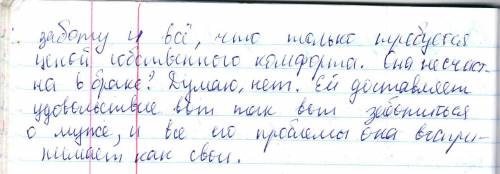 заботу и всё, что только требуется
ценой собственного комфорта. Она несчаст-
на в браке? Думаю, нет. Ей доставляет
удовольствие вот так вот заботиться
о муже, и все его проблемы она воспри-
нимает как свои.